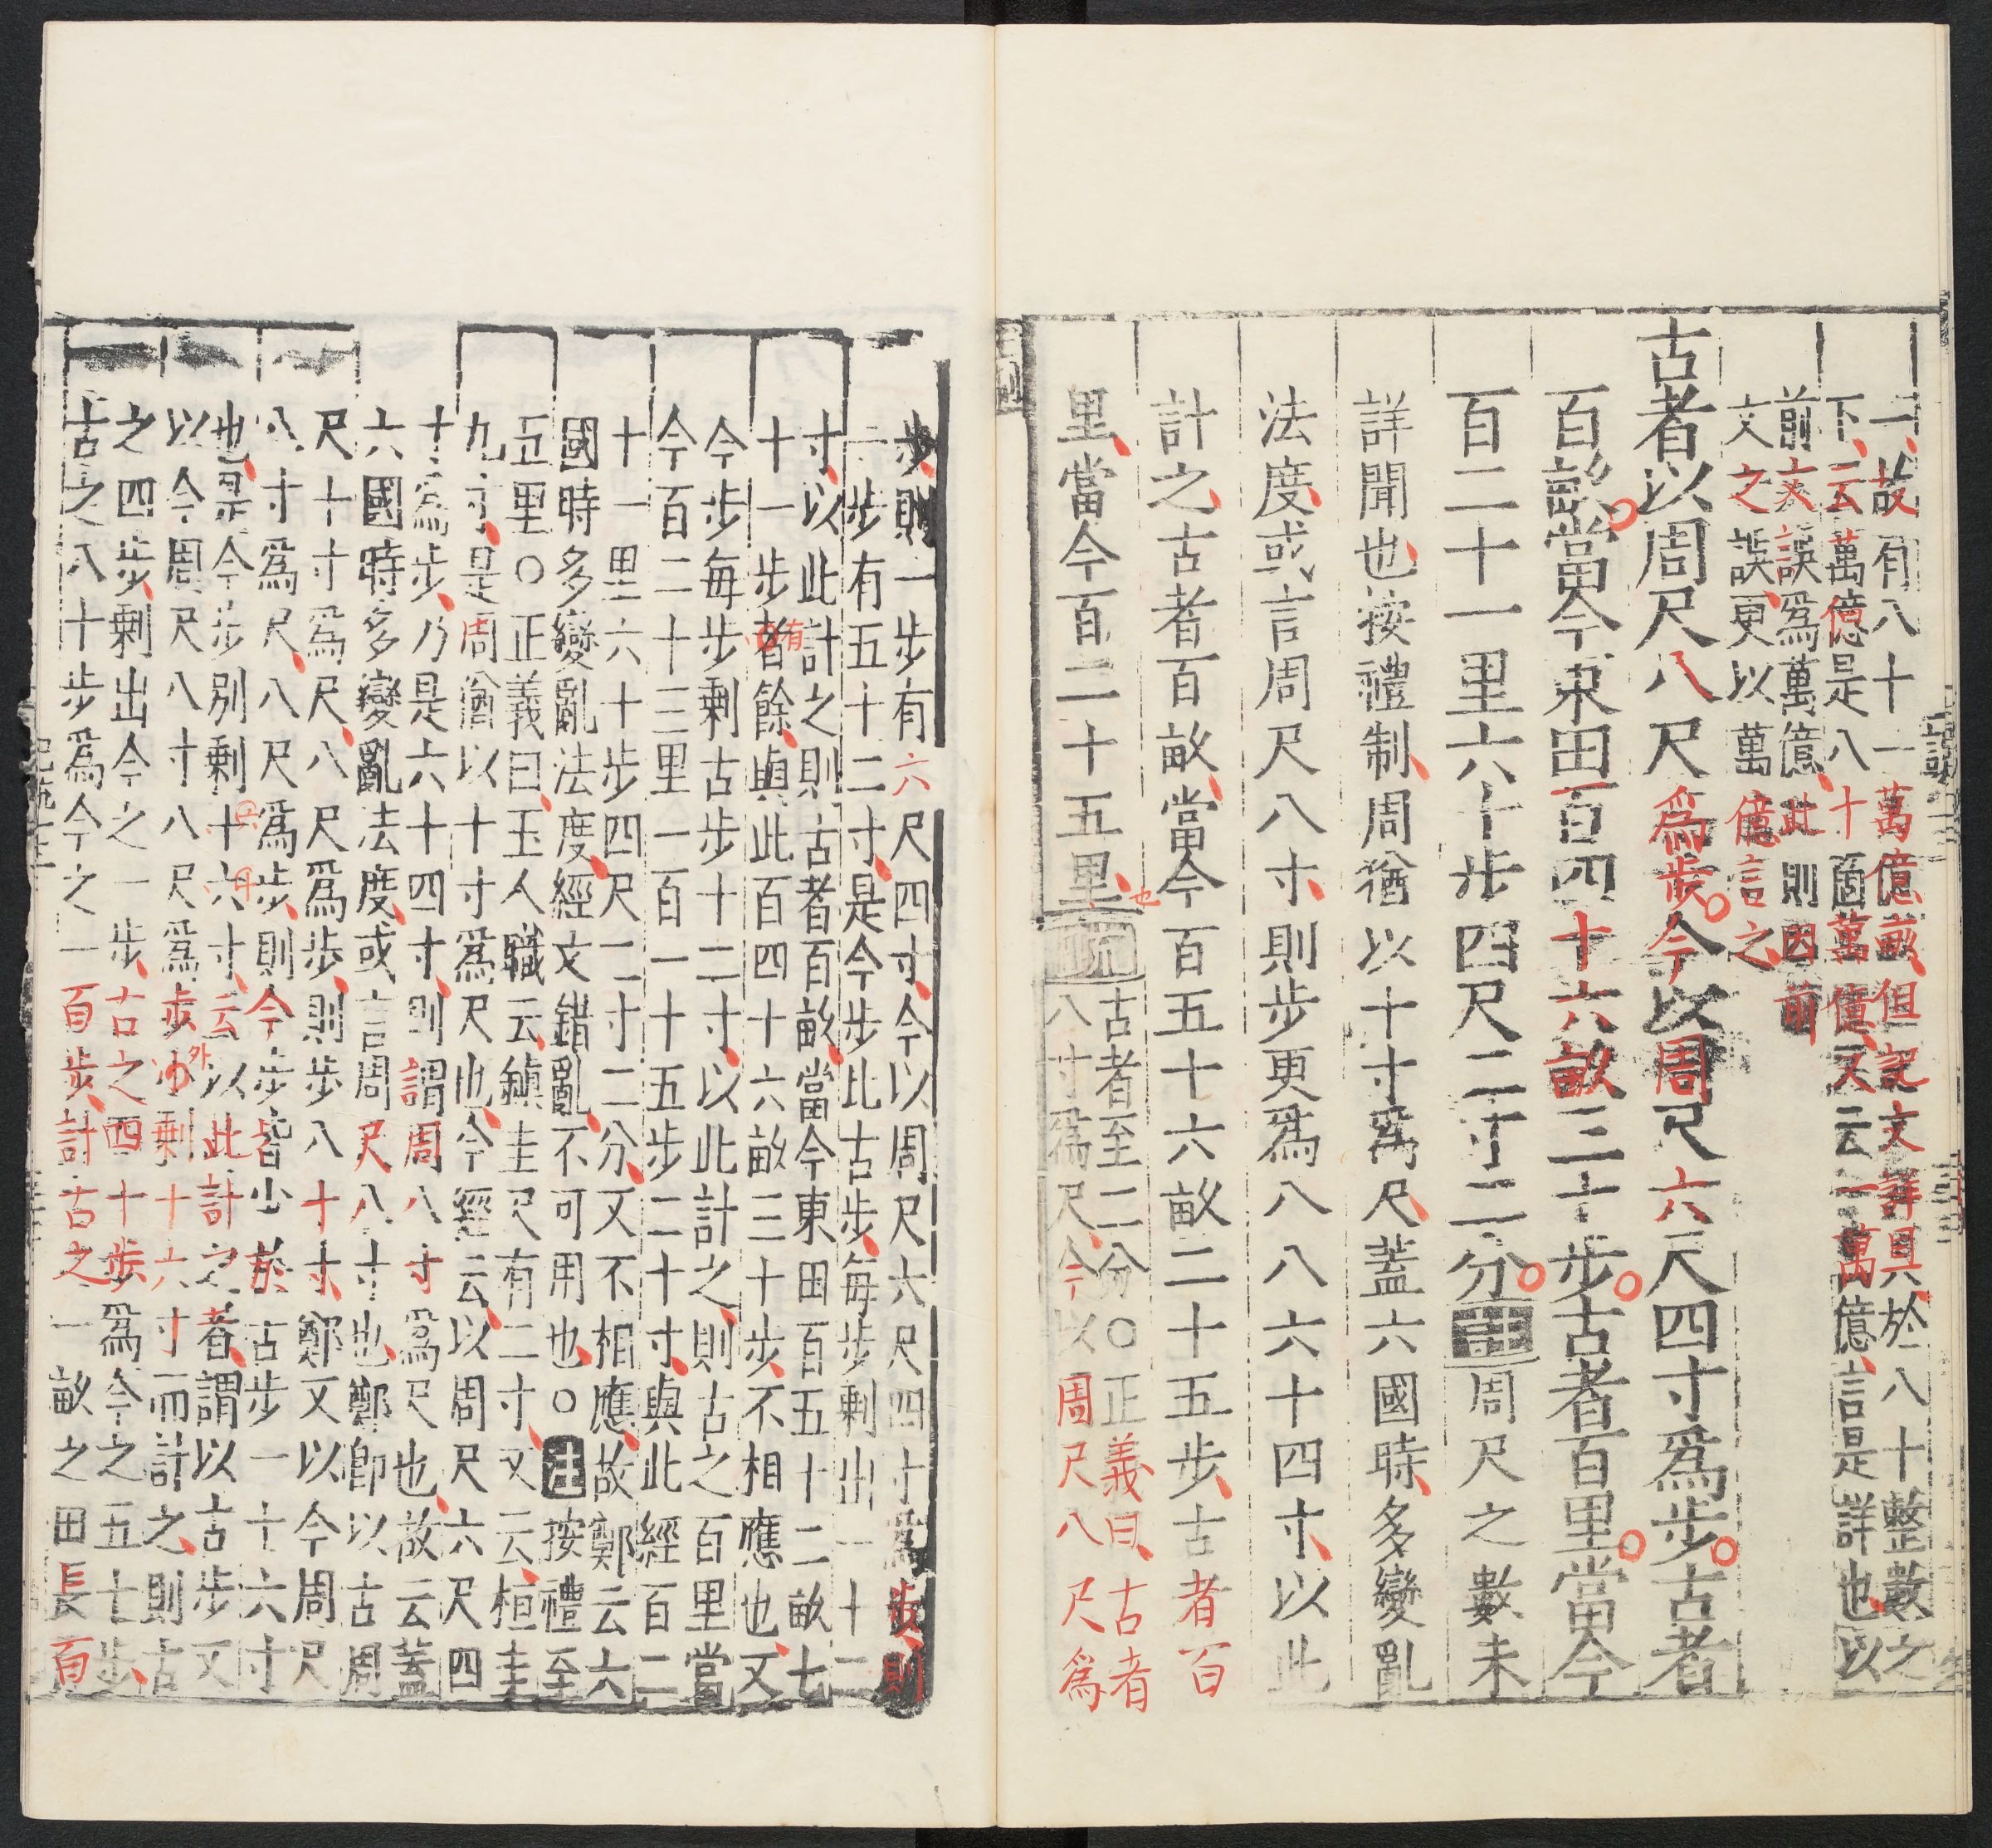 一故有八十一萬億畝但記文詳具於八十整數之
下云萬億是八十箇萬億又云一萬億言是詳也以
前文誤爲萬億此則因前
文之誤更以萬億言之
古者以周尺八尺爲步今以周尺六尺四寸爲步古者
百畝當今東田百四十六畝三十步古者百里當今
百二十一里六十步四尺二寸二分注周尺之數未
詳聞也按禮制周猶以十寸爲尺蓋六國時多變亂
法度或言周尺八寸則步更爲八八六十四寸以此
計之古者百畝當今百五十六畝二十五步古者百
里當今百二十五里也
疏古者至二分○正義曰古者
八寸爲尺今以周尺八尺爲
步則一步有六尺四寸今以周尺六尺四寸爲步則
一步有五十二寸是今步比古步每步剩出一十二
寸以此計之則古者百畝當今東田百五十二畝七
十一步有餘與此百四十六畝三十步不相應也又
今步每步剩古步十二寸以此計之則古之百里當
今百二十三里一百一十五步二十寸與此經百二
十一里六十步四尺二寸二分又不相應故鄭云六
國時多變亂法度經文錯亂不可用也○注按禮至
五里○正義曰玉人職云鎮圭尺有二寸又云桓圭
九寸是周猶以十寸爲尺也今經云以周尺六尺四
寸爲步乃是六十四寸則謂周八寸爲尺也故云蓋
六國時多變亂法度或言周尺八寸也鄭即以古周
尺十寸爲尺八尺爲步則步八十寸鄭又以今周尺
八寸爲尺八尺爲步則今步皆少於古步一十六寸
也是今步別剩十六寸云以此計之者謂以古步又
以今周尺八寸八尺爲步外剩十六寸而計之則古
之四步剩出今之一步古之四十步爲今之五十步
古之八十步爲今之一百步計古之一畝之田長百